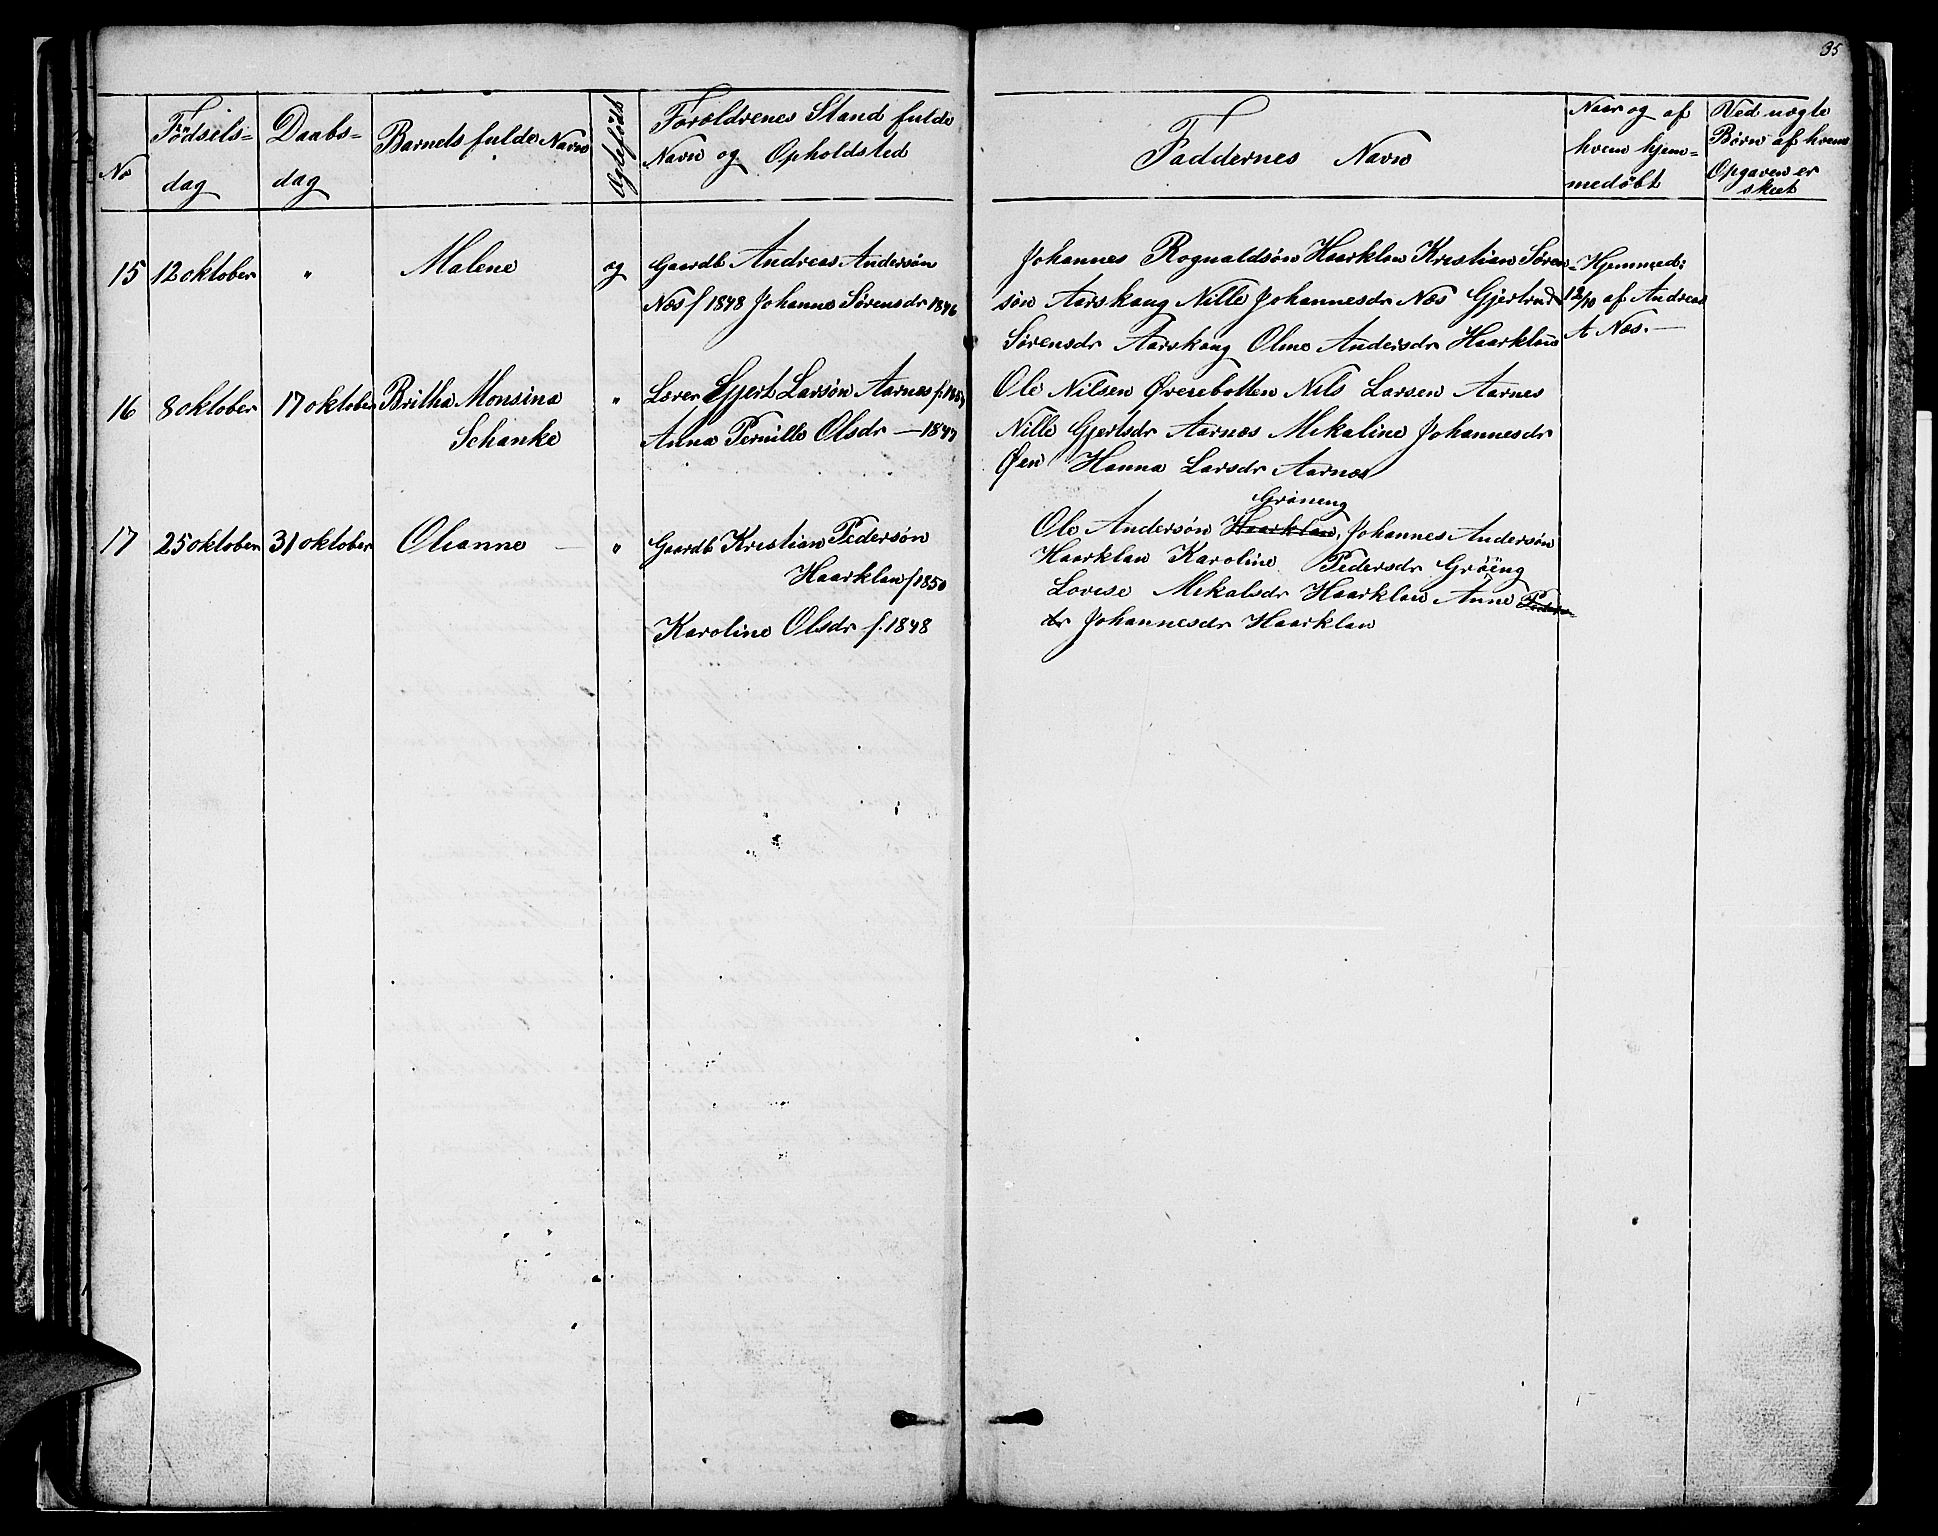 35
No
Födsels-
dag
Daabs-
dag
Barnets fulde Navn
Ægtefödt
Forældrenes Stand fulde
Navn og Opholdsted
Faddernes Navn
Naar og af
hvem hjem-
medöbt
Ved uægte
Börn af hvem
Opgaven er
skeet
15 12 oktober " Malene æg Gaardb Andreas Andersön
Næs f 1848 Johanne Sörensdr 1846
Johannes Rognaldsön Haarklau Kristian Sören-
sön Aarskaug Nille Johannesdr Næs Gjertrud
Sörensdr Aarskaug Oline Andersdr Haarklau
Hjemmed:
12/10 af Andreas
A Næs. —
16 8 oktober 17 oktober Britha Monsina
Schanke
" Lærer Gjert Larsön Aarnes f.
Anna Pernille Olsdr — 1847
Ole Nilsen Øvrebotten Nils Larsen Aarnes
Nille Gjertsdr Aarnæs Mikaline Johannesdr
Øen Hanna Larsdr Aarnæs
17 25 oktober 31 oktober Olianne — " Gaardb Kristian Pedersön
Haarklau f 1850
Karoline Olsdr f. 1848
Gröneng
Ole Andersön Haarklau, Johannes Andersön
Haarklau Karoline Pedersdr Gröeng
Lovise Mikalsdr Haarklau Anne Peders
dr Johannesdr Haarklau